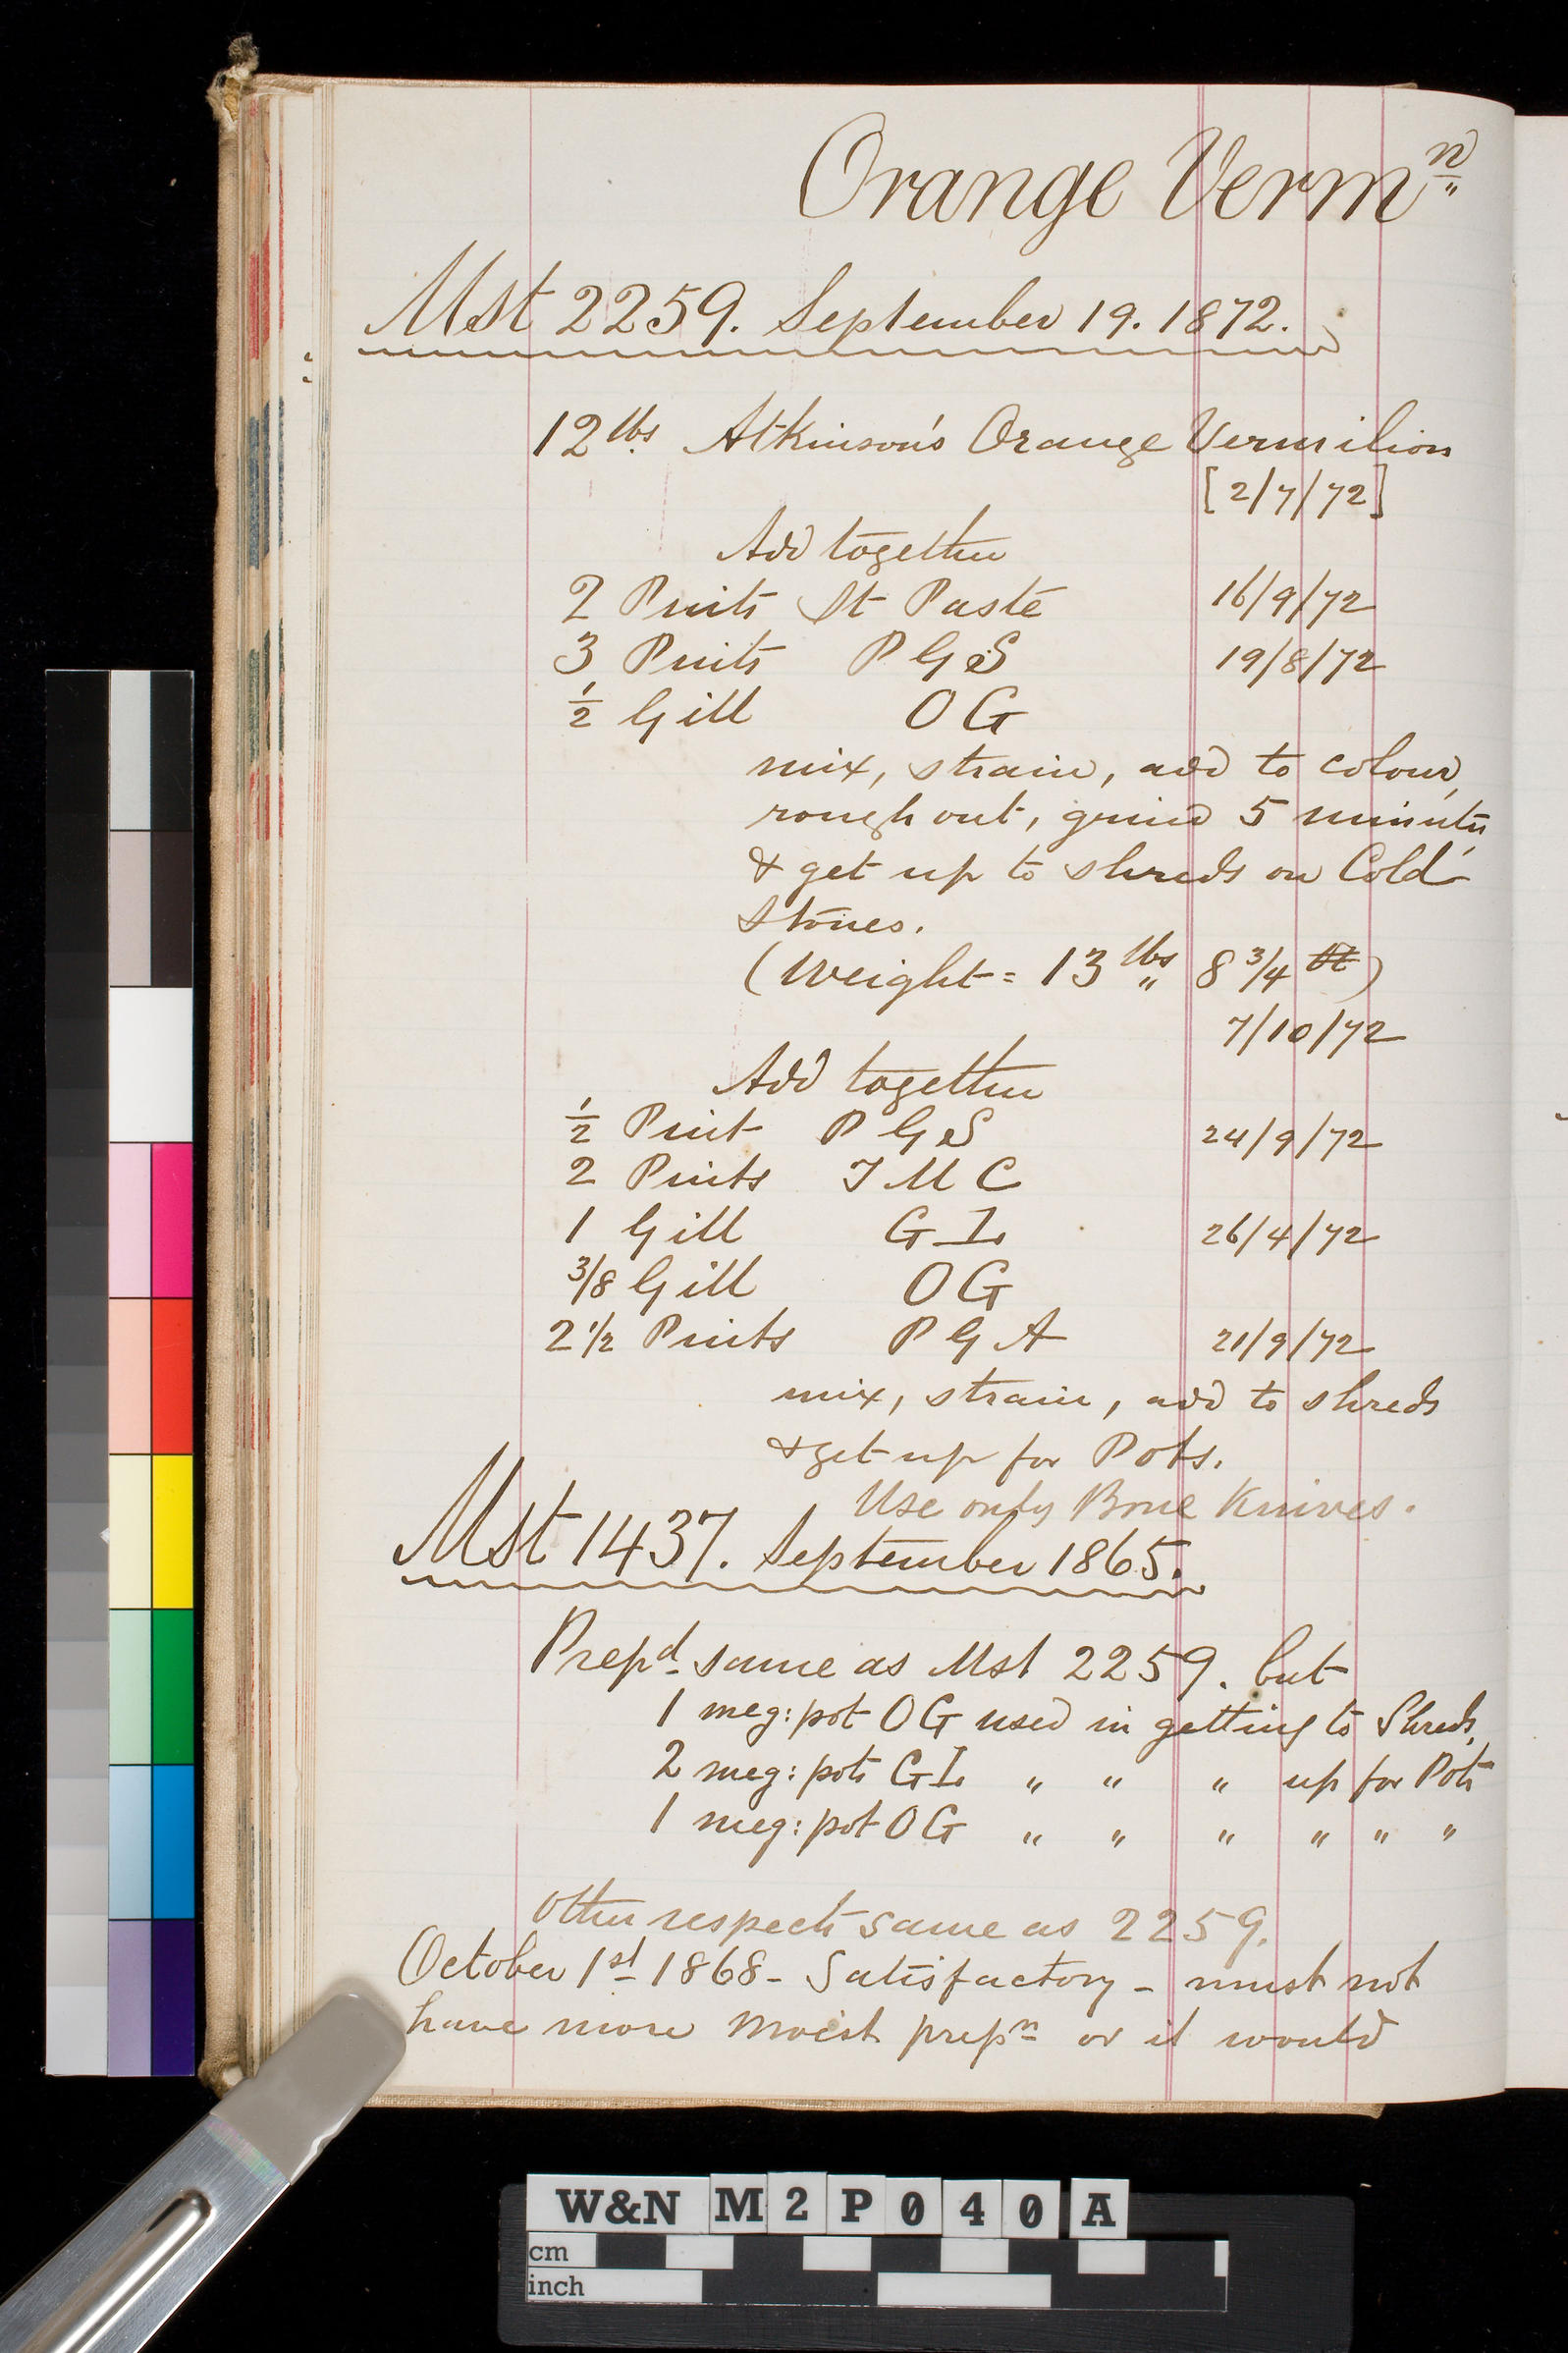 Orange Vermⁿ
Mst 2259. September 19. 1872.
12 lbs. Atkinson's Orange Vermilion
[2/7/72]
Add together
2 Pints St Paste 16/9/72
3 Pints P G S 19/8/72
½ Gill O G
mix, strain, add to colour,
rough out, grind 5 minutes,
& get up to shreds on Cold
Stones.
(Weight = 13 lbs 8 3/4)
7/10/72
Add together
½ Pint P G S 24/9/72
2 Pints I M C
1 Gill G I 26/4/72
3/8 Gill O G
2 1/2 Pints P G A 21/9/72
mix, strain, add to shreds
& get up for Pots.
Use only Bone Knives.
Mst 1437. September 1865.
Prepd same as Mst 2259. but
1 meg: pot O G used in getting to Shreds,
2 meg: pots G I " " " up for Pots
1 meg: pot O G " " " " " "
Other respects same as 2259.
October 1st 1868 - Satisfactory - must not
have more moist prepn or it would
W&N M 2 P 0 4 0 A
cm
inch